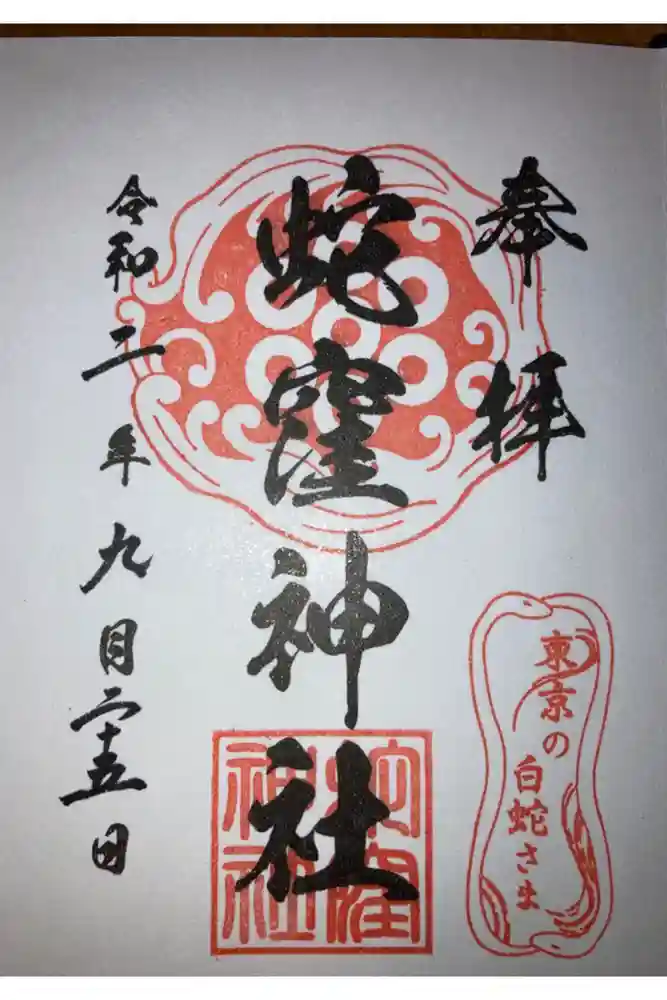 奉拝
東京の
白蛇さま
蛇窪神社
蛇窪
神社
令和二年九月二十五日